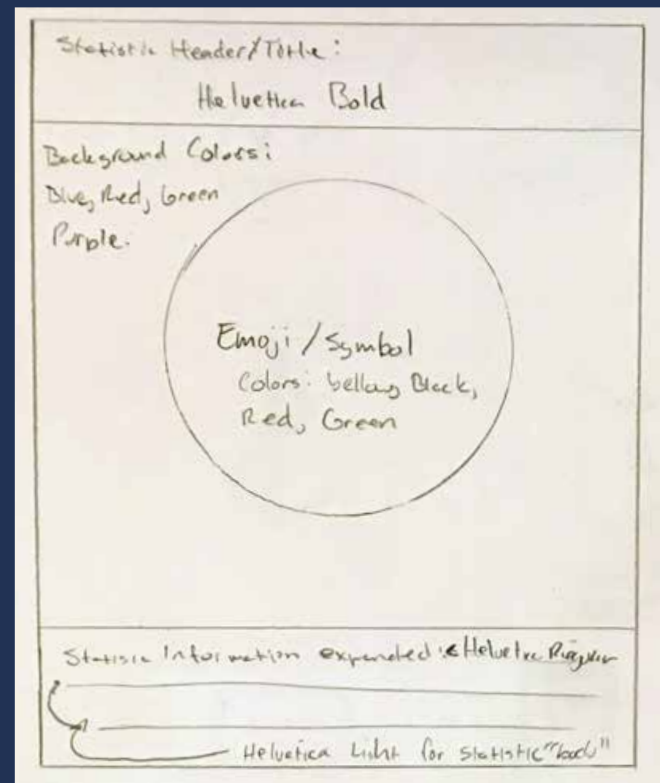 Statistic Header/Title:
Helvetica Bold
Background Colors:
Blue, Red, Green
Purple.
Emoji / Symbol
Colors: Yellow, Black,
Red, Green
Statistic Information expanded: Helvetica Regular
Helvetica Light for statistic "body"